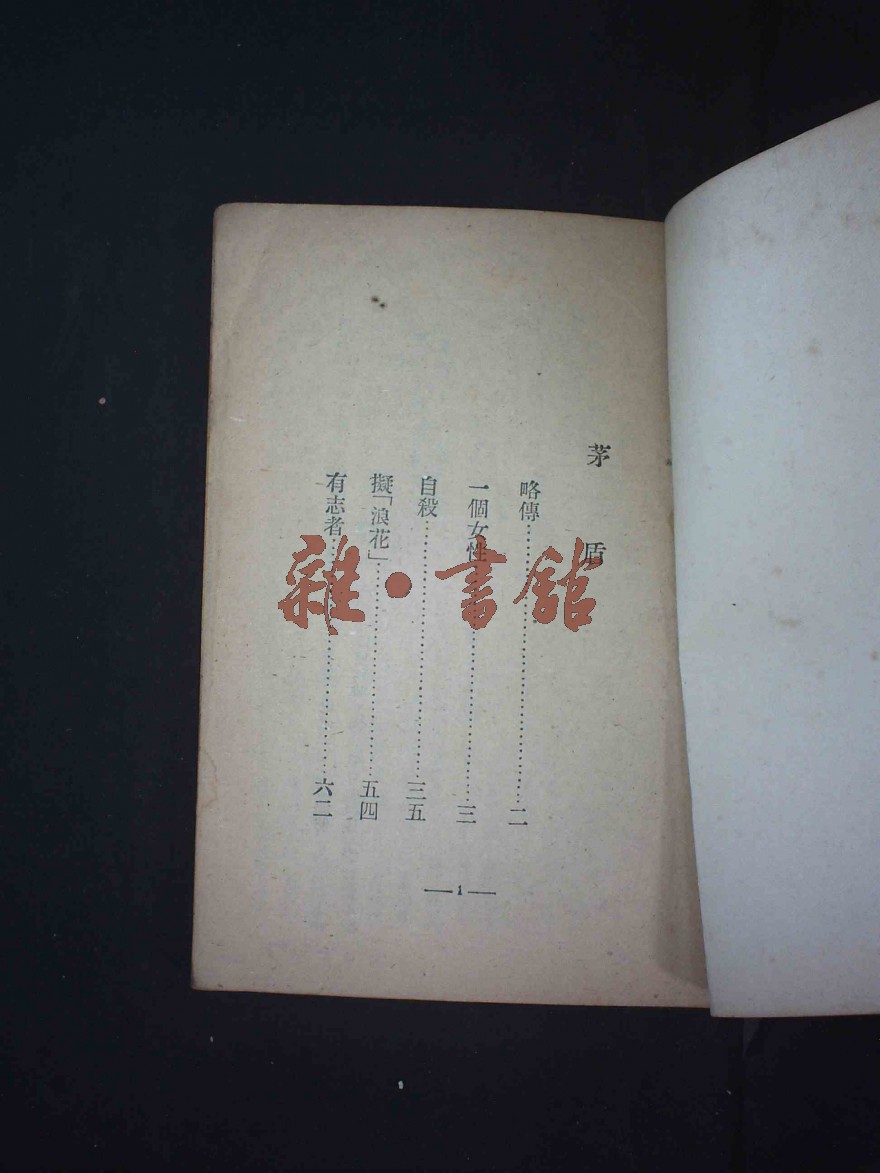 茅盾
略傳…………二
一個女性…………三
自殺…………三五
擬「浪花」…………五四
有志者…………六二
—1—
雜·書館